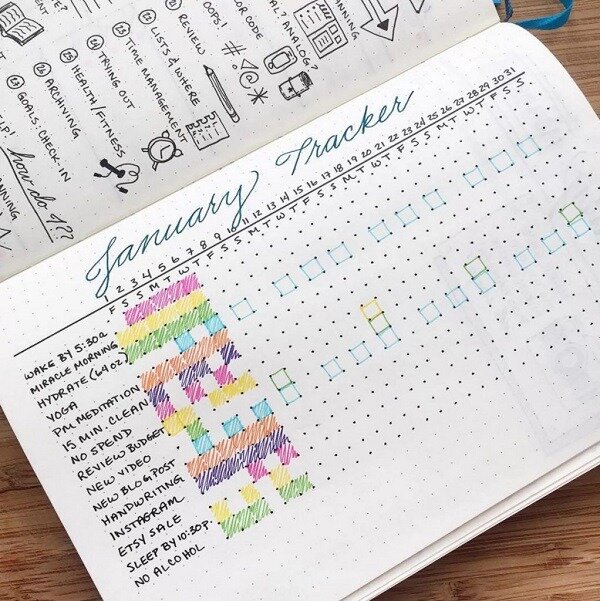 PLANNING
HELP!
how do I??
17 GOALS: CHECK-IN
ARCHIVING
HEALTH/FITNESS
TRYING OUT
TIME MANAGEMENT
LISTS & WHERE
REVIEW
OOPS!
#:@*
COLOR CODE
ANALOG?
PLANNING
January Tracker
1 2 3 4 5 6 7 8 9 10 11 12 13 14 15 16 17 18 19 20 21 22 23 24 25 26 27 28 29 30 31
F S S M T W T F S S M T W T F S S M T W T F S S M T W T F S S
WAKE BY 5:30A
MIRACLE MORNING
HYDRATE (64OZ)
YOGA
PM MEDITATION
15 MIN. CLEAN
NO SPEND
REVIEW BUDGET
NEW VIDEO
NEW BLOGPOST
HANDWRITING
INSTAGRAM
ETSY SALE
SLEEP BY 10:30P
NO ALCOHOL